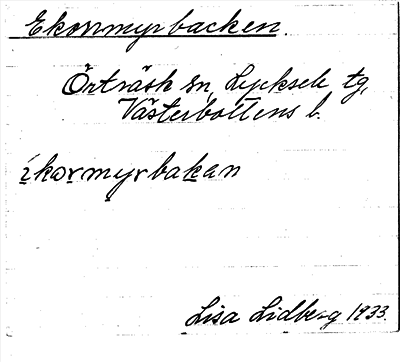 Ekorrmyrbacken.
Örträsk sn, Lycksele tg,
Västerbottens l.
ìkormyrbakan
Lisa Lidberg 1933.